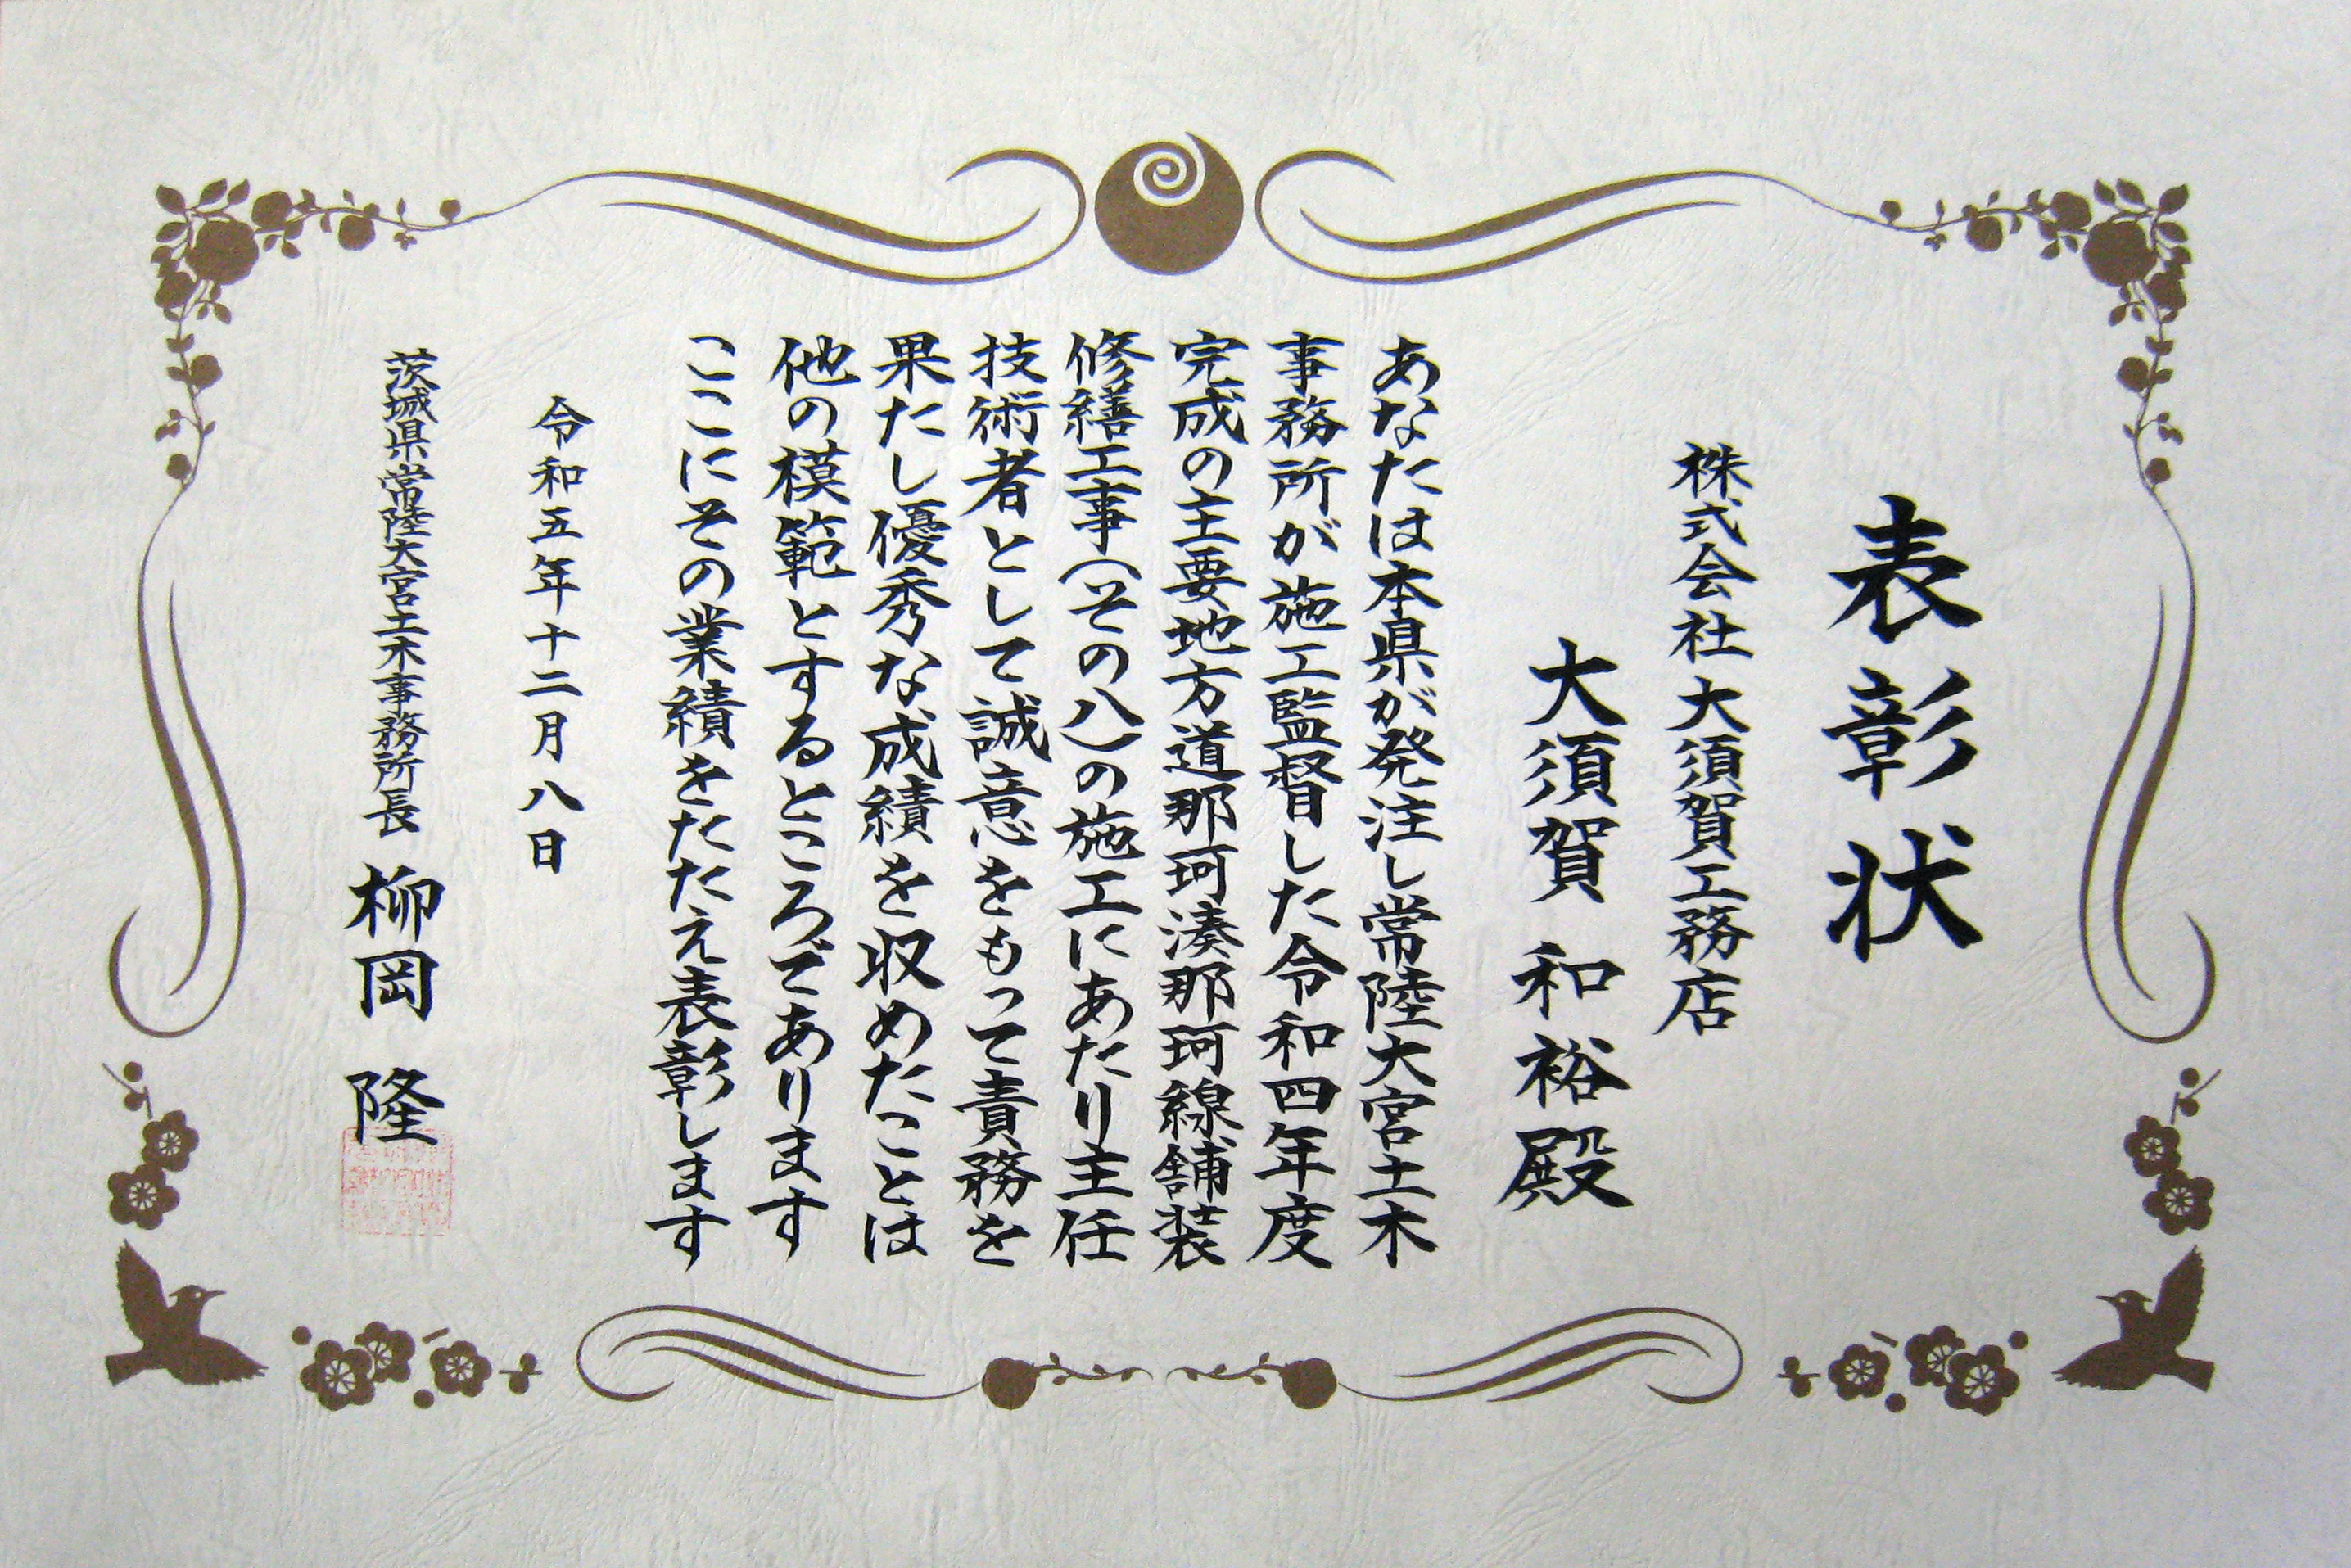 表彰状
株式会社大須賀工務店
大須賀和裕殿
あなたは本県が発注し常陸大宮土木
事務所が施工監督した令和四年度
完成の主要地方道那珂湊那珂線舗装
修繕工事(その八)の施工にあたり主任
技術者として誠意をもって責務を
果たし優秀な成績を収めたことは
他の模範とするところであります
ここにその業績をたたえ表彰します
令和五年十二月八日
茨城県常陸大宮土木事務所長 柳岡 隆